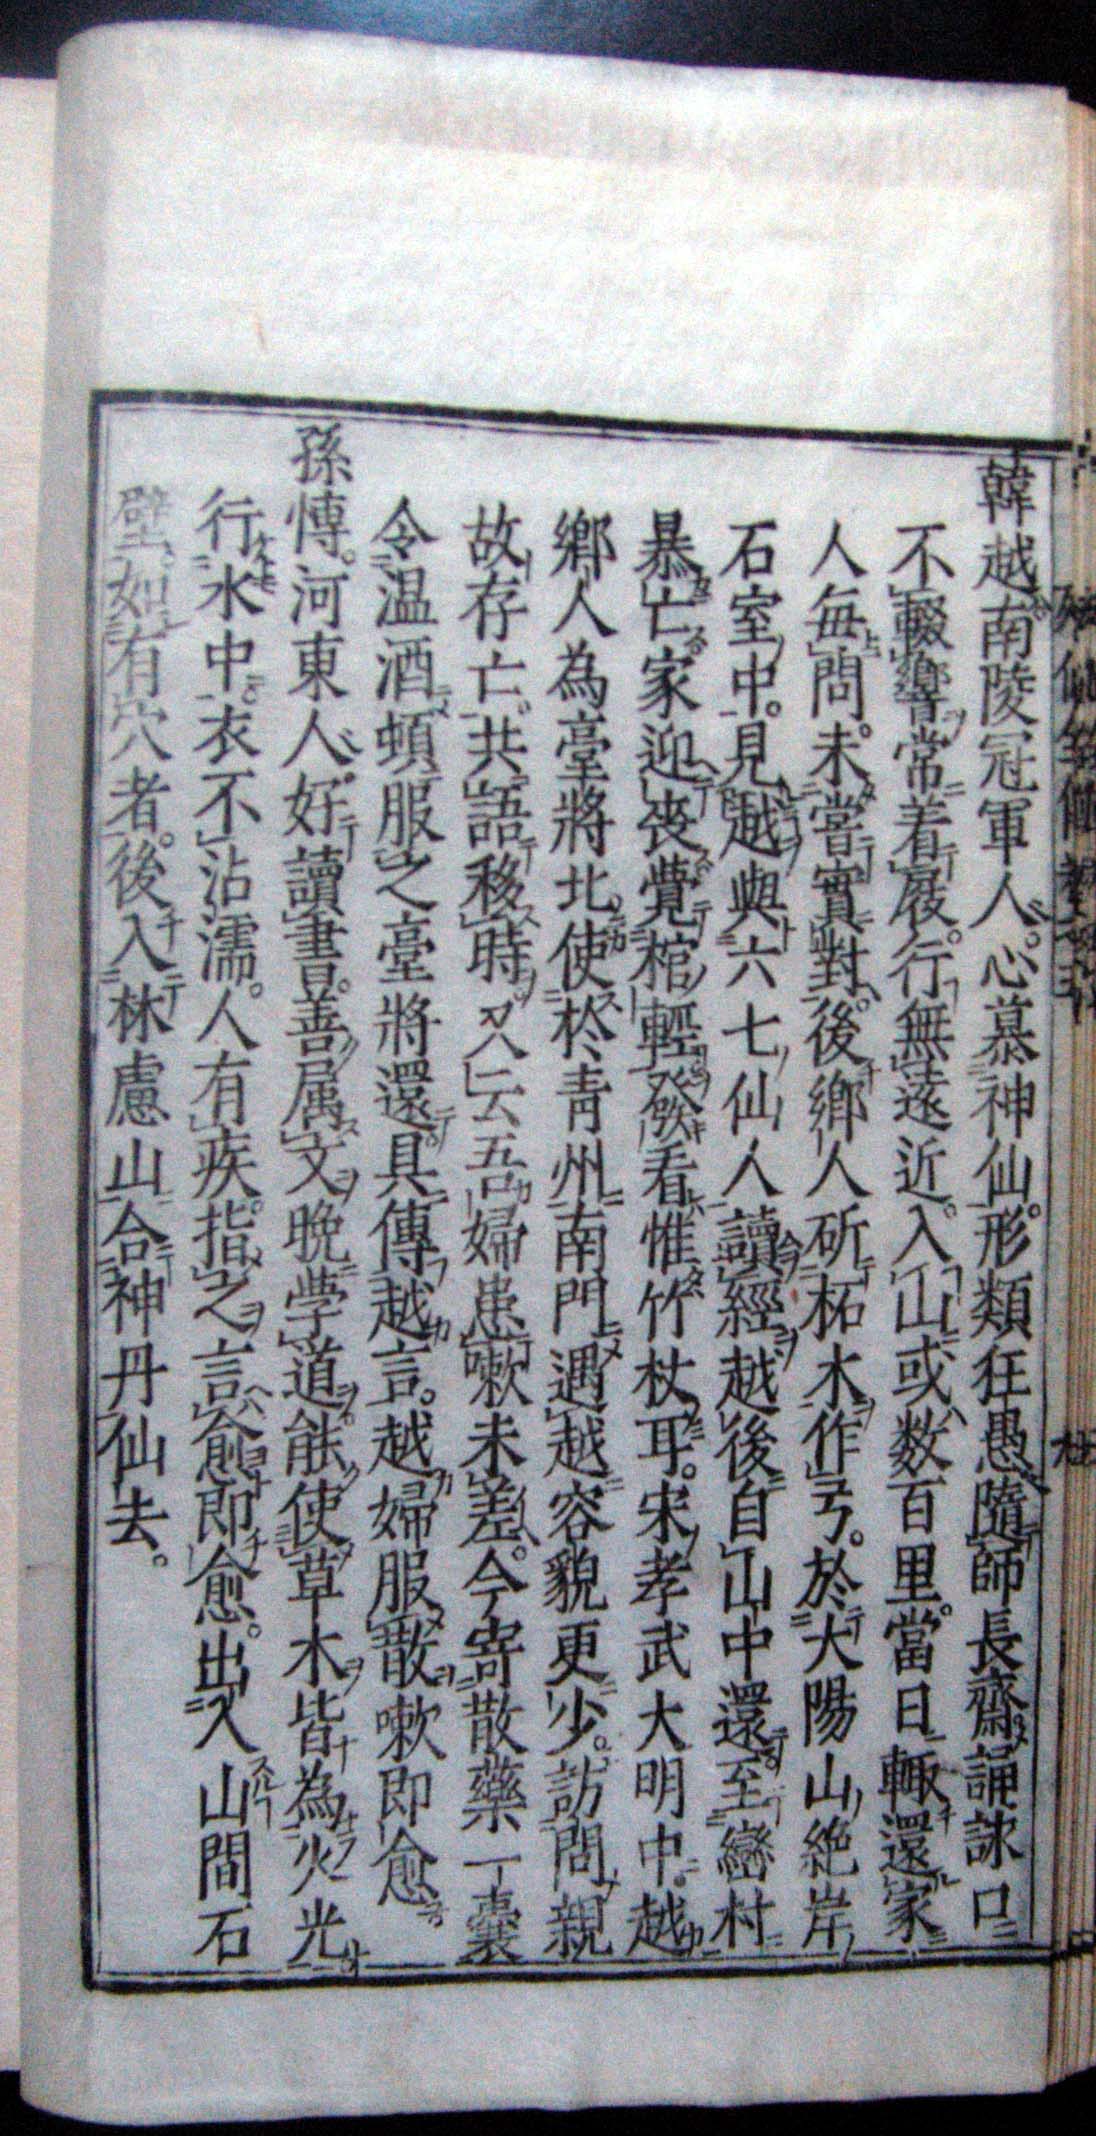 韓越。南陵冠軍人。心慕神仙。形類狂愚。隨師長齋。誦詠口
不輟響。常着屐。行無遠近。入山或数百里。當日輙還家
人每問。未嘗實對。後鄉人斫柘木作弓。於大陽山絶岸
石室中。見越與六七仙人讀經。越後自山中還至巒村
暴亡。家迎䘮覺棺輕。發看惟竹杖耳。宋孝武大明中。越
鄉人為臺將北使於青州南門遇越。容貌更少。訪問親
故存亡。共語移時。又云吾婦患嗽未差。今寄散藥一囊
令温酒頓服之。臺將還。具傳越言。越婦服散嗽即愈
孫博。河東人。好讀書。善属文。晚學道。能使草木皆為火光
行水中。衣不沾濡。人有疾。指之言愈即愈。出入山間石
壁。如有穴者。後入林慮山合神丹仙去。